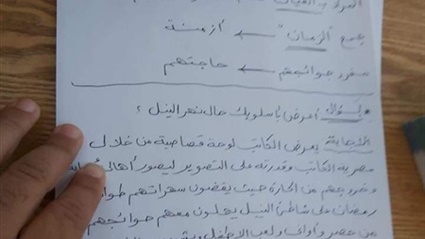 جمع "الزمان" ← أزمنة
مفرد حوائجهم ← حاجتهم
* سؤال: اعرض بأسلوبك حال نهر النيل؟
الإجابة يعرض الكاتب لوحة قصاصية من خلال
مصرية الكاتب وقدرته على التصوير ليصور أهالى
وخروجهم من الحارة حيث يقضون سهراتهم طوال
رمضان على شاطئ النيل يحملون معهم حوائجهم
من حصر وأوانى ولعب الأطفال